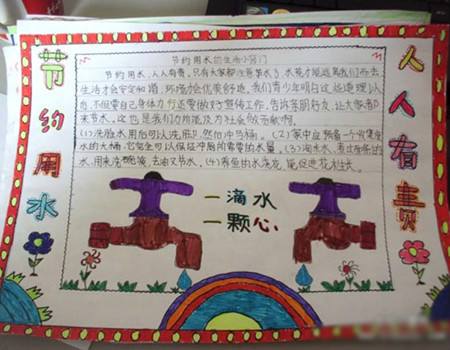 节约用水
人人有责
节约用水的生活小窍门
节约用水,人人有责,只有大家都注意节水,水荒才能远离我们而去
生活才会安定和谐,环境才会优美舒适。我们青少年明白这些道理以
后,不但要自身体力行还要做好宣传工作,告诉亲朋好友,让大家都
来节水,这也是我们力所能及为社会做贡献啊。
(1)洗脸水用后可以洗脚,然后冲厕所。(2)家中应预备一个收集废
水的大桶,它完全可以保证冲厕所需要的水量。(3)淘米水、煮过面条的
水,用来洗碗筷,去油又节水。(4)养鱼的水浇花,能促进花木生长。
一滴水
一颗心